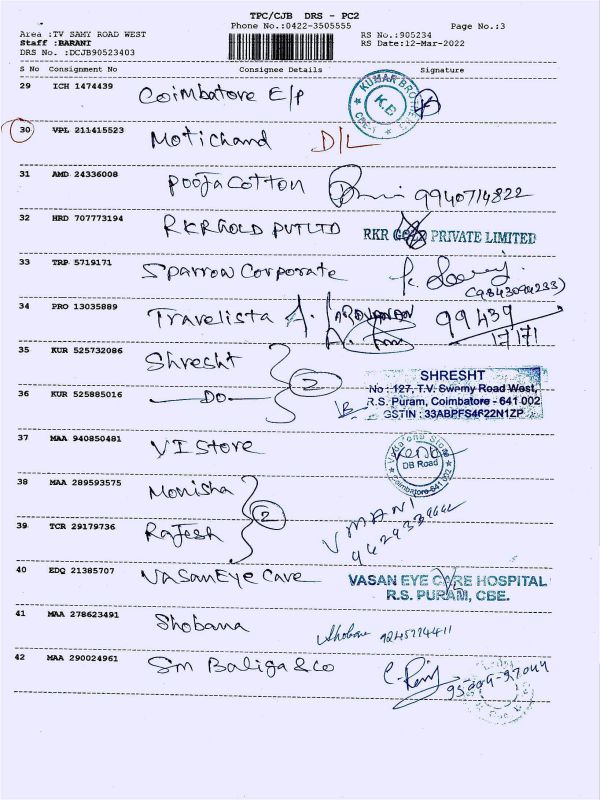 TPC/CJB DRS - PC2
Phone No.:0422-3505555 Page No.:3
Area :TV SAMY ROAD WEST RS No.:905234
Staff :BARANI RS Date:12-Mar-2022
DRS No. :DCJB90523403
S No Consignment No Consignee Details Signature
29 ICH 1474439 Coimbatore E/P KUMAR K.B CBE-1
30 VPL 211415523 Motichand D/L
31 AMD 24336008 Pooja Cotton 9940714822
32 HRD 707773194 RKR GOLD PVT LTD RKR PRIVATE LIMITED
33 TRP 5719171 Sparrow Corporate
34 PRO 13035889 Travelista 99439
17171
35 KUR 525732086 Shresht 2 SHRESHT
No : 127, T.V. Swamy Road West,
36 KUR 525885016 Do R.S. Puram, Coimbatore - 641 002
GSTIN : 33ABPFS4F22N1ZP
37 MAA 940850481 VI Store DB Road Coimbatore-641 002
38 MAA 289593575 Monisha 2
39 TCR 29179736 Rajesh V MANI
40 EDQ 21385707 Vasan Eye Care VASAN EYE CARE HOSPITAL
R.S. PURAM, CBE.
41 MAA 278623491 Shobana 9245224411
42 MAA 290024961 Sm Baliga & Co